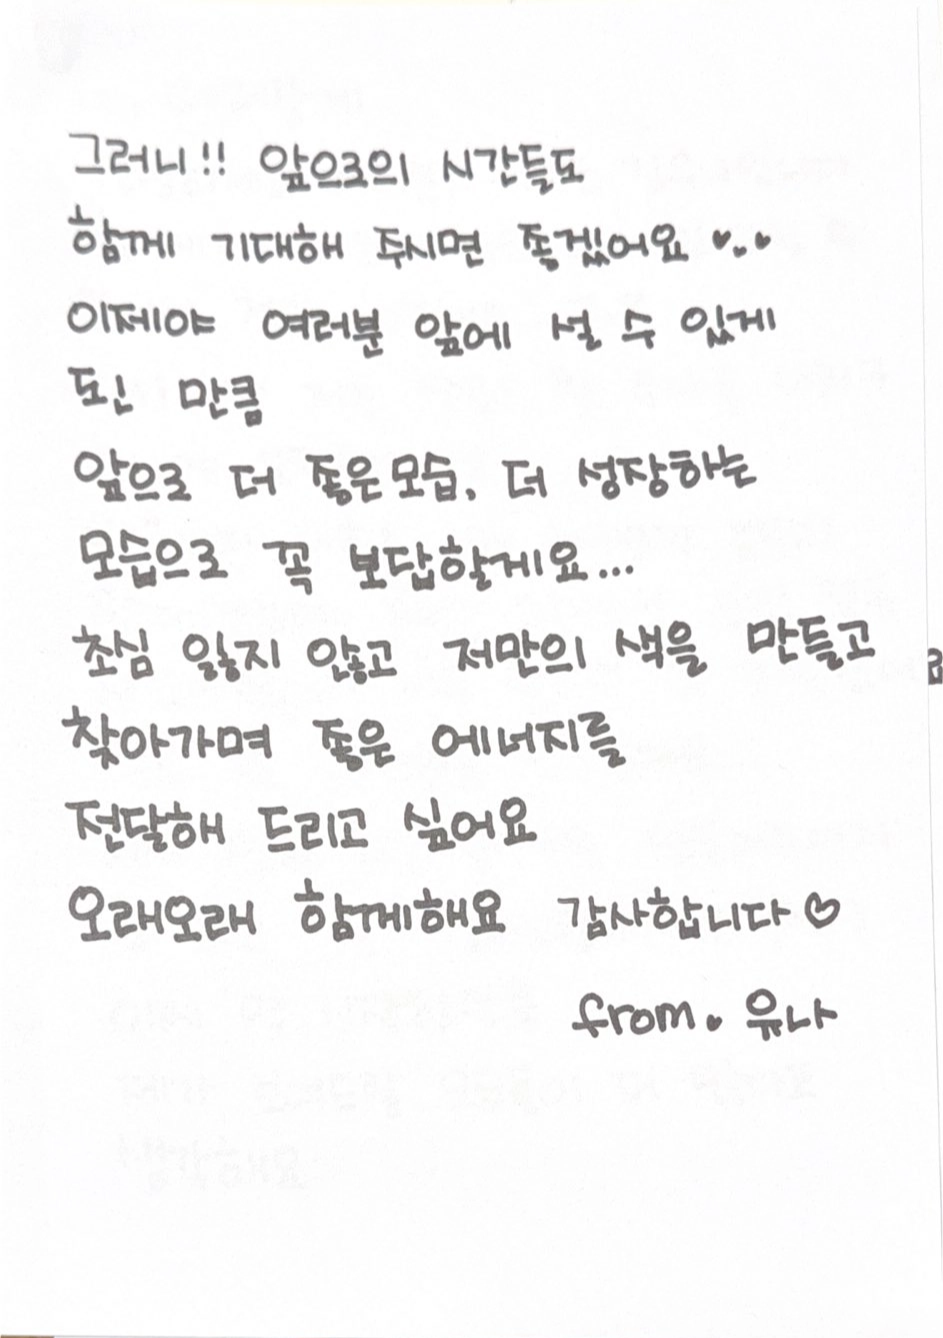 그러니!! 앞으로의 시간들도
함께 기대해 주시면 좋겠어요 ♥..♥
이제야 여러분 앞에 설 수 있게
된 만큼
앞으로 더 좋은 모습, 더 성장하는
모습으로 꼭 보답할게요...
초심 잃지 않고 저만의 색을 만들고
찾아가며 좋은 에너지를
전달해 드리고 싶어요
오래오래 함께해요 감사합니다♡
from. 유나